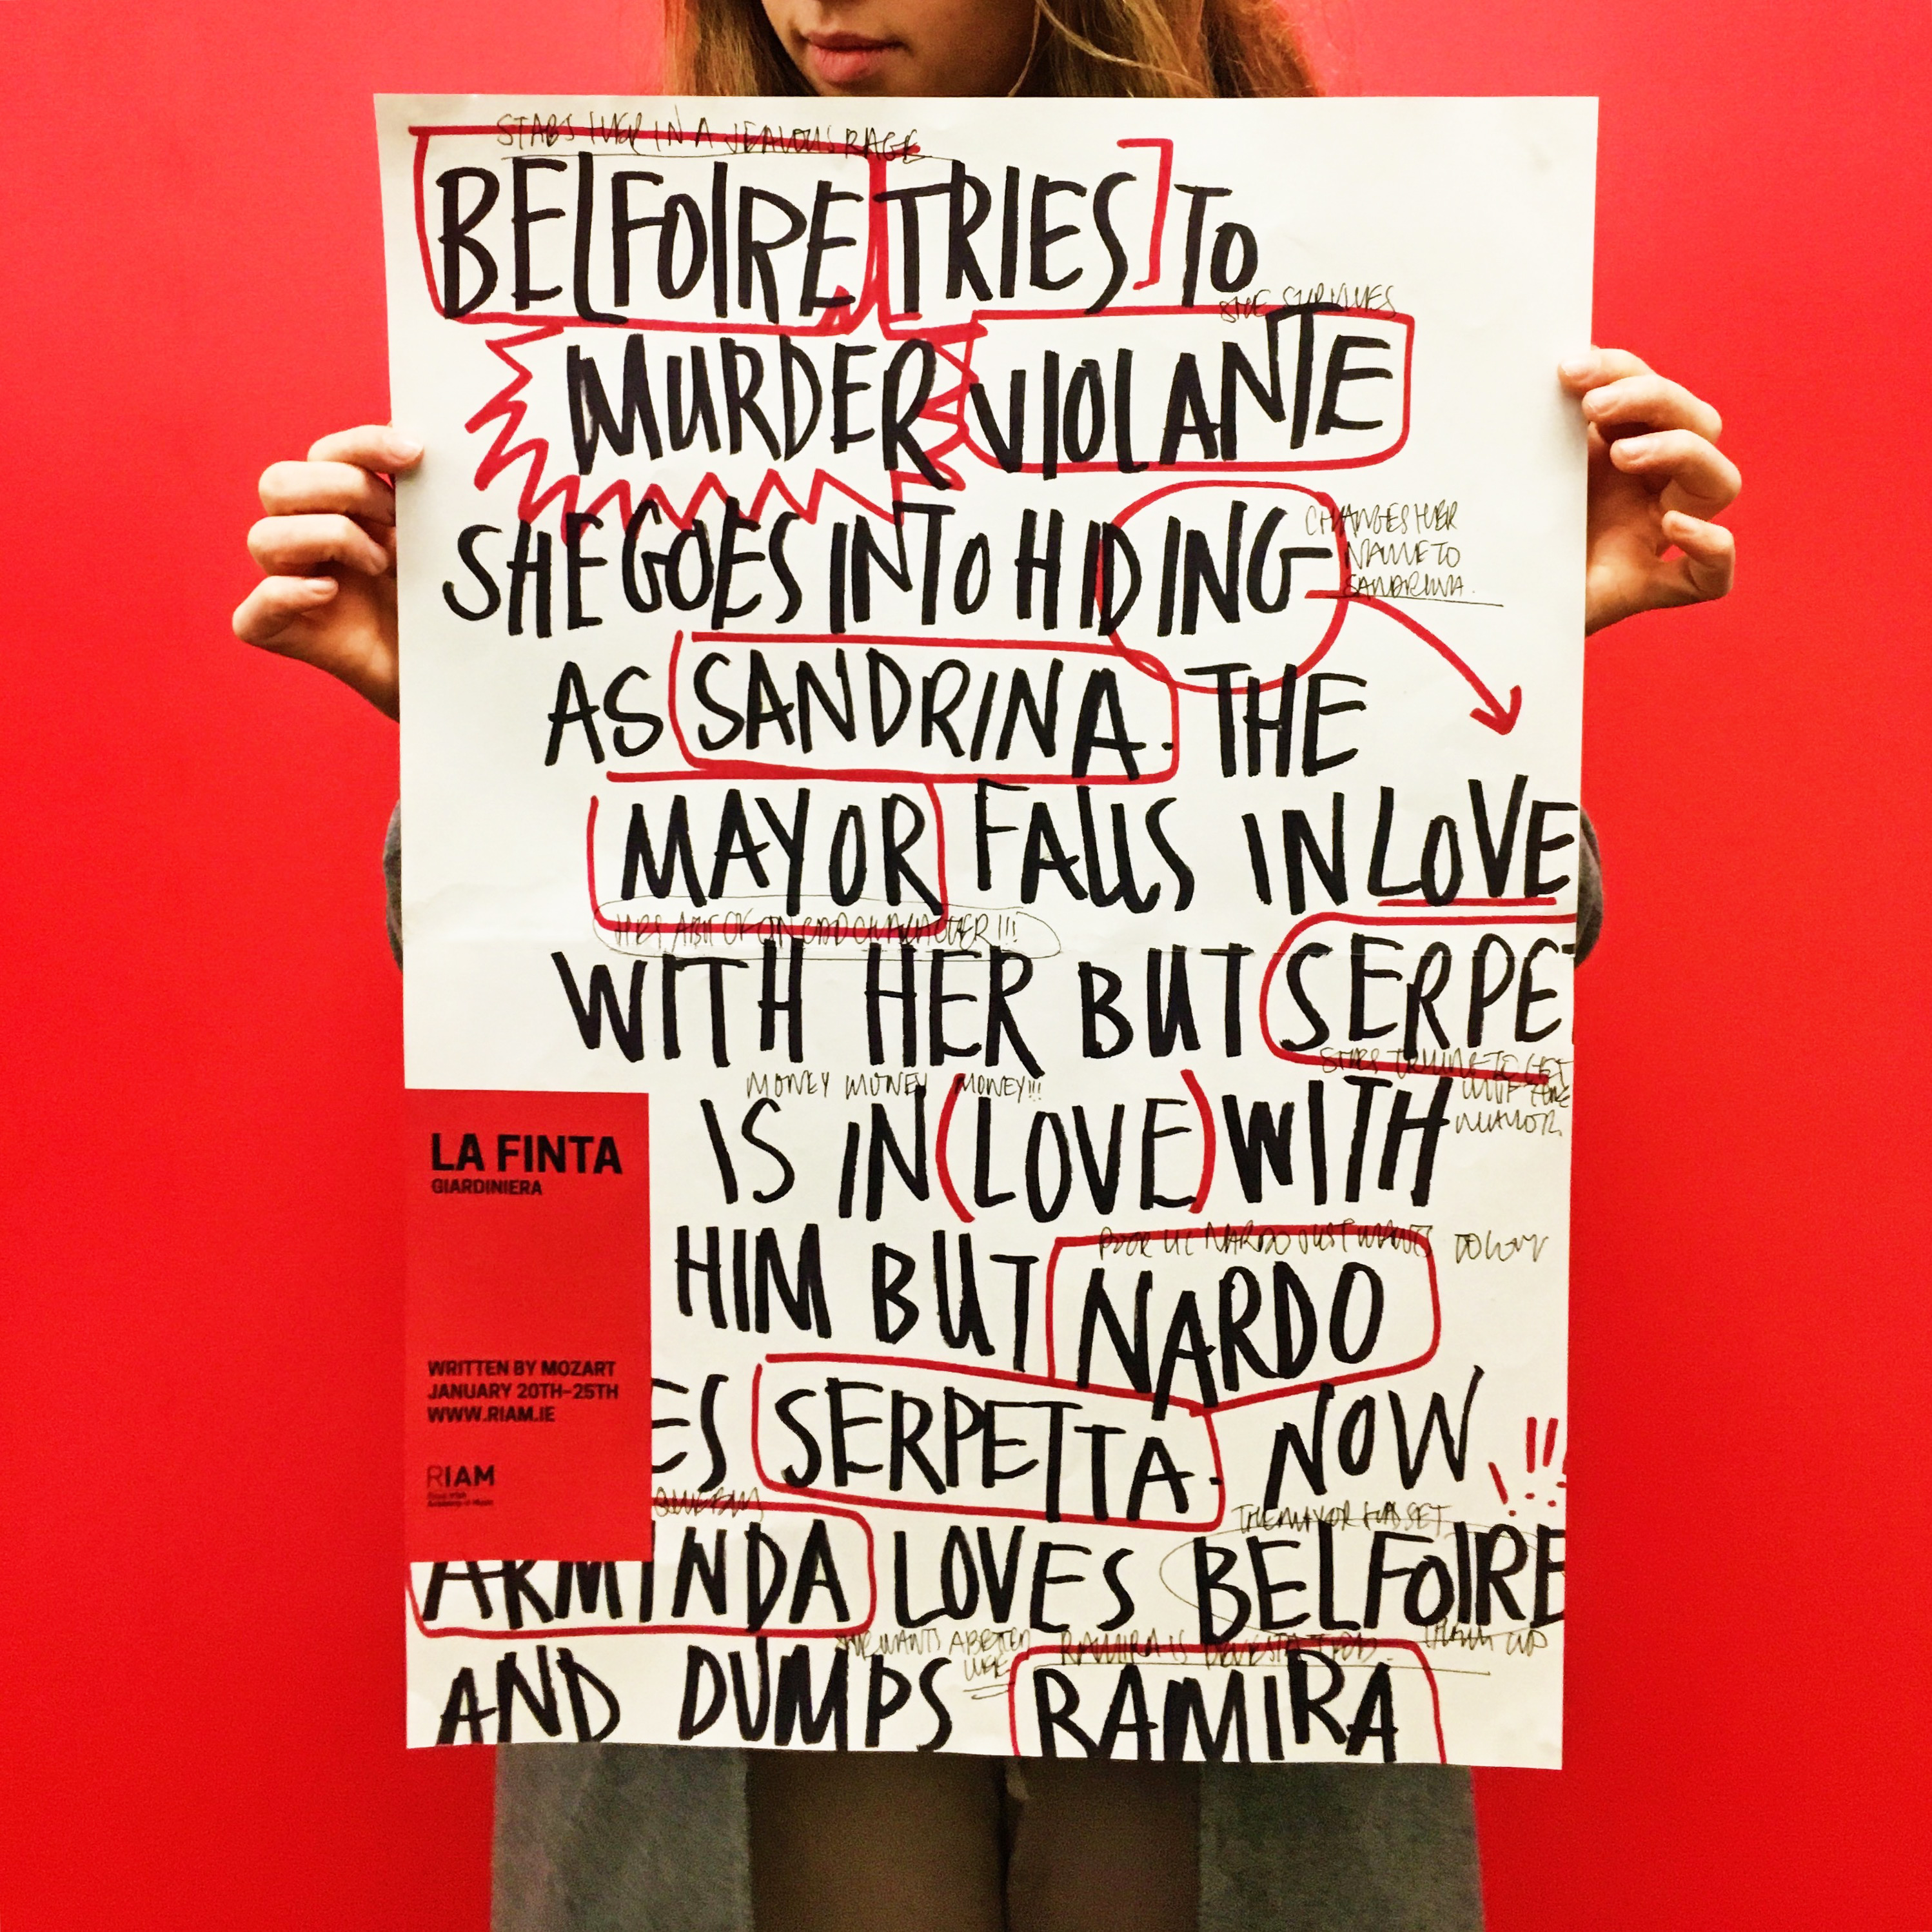 STABS HER IN A JEALOUS RAGE
BELFOIRE TRIES] TO
SHE SURVIVES
MURDER VIOLANTE
SHE GOES INTO HIDING
CHANGES HER
NAME TO
SANDRINA.
AS SANDRINA. THE
MAYOR FALLS IN LOVE
HES A BIT OF AN ODD CHARACTER!!!
WITH HER BUT SERPE
STOPS TRYING TO GET
WITH THE
MAYOR.
MONEY MONEY MONEY!!!
IS IN (LOVE) WITH
POOR LIL NARDO JUST WANTS TO LOVE
HIM BUT NARDO
ES SERPETTA. NOW !!
THE MAYOR HAS SET
ARMINDA LOVES BELFOIRE
THEM UP
SHE WANTS A BETTER
LIFE
RAMIRA IS DEVESTATED.
AND DUMPS RAMIRA
LA FINTA
GIARDINIERA
WRITTEN BY MOZART
JANUARY 20TH–25TH
WWW.RIAM.IE
RIAM
Royal Irish
Academy of Music